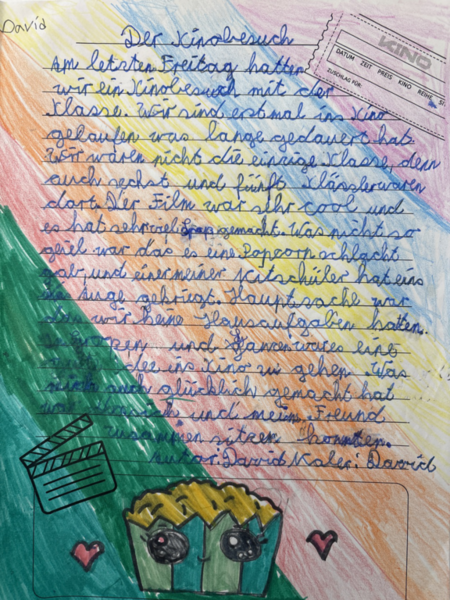 David
Der Kinobesuch
KINO
DATUM ZEIT PREIS KINO REIHE
ZUSCHLAG FÜR:
Am letzten Freitag hatten
wir ein Kinobesuch mit der
Klasse. Wir sind erstmal ins Kino
gelaufen was lange gedauert hat.
Wir waren nicht die einzige Klasse denn
auch sechst und fünft Klässler waren
dort. Der Film war sehr cool und
es hat sehr viel Spaß gemacht. Was nicht so
geiel war das es eine Popcorn schlacht
gab und einer meiner Mitschüler hat eins
ins Auge gekriegt. Hauptsache war
das wir keine Hausaufgaben hatten.
und waren wares eine
Idee ins Kino zu gehen. Was
mich auch glücklich gemacht hat
war dass ich und mein Freund
zusammen sitzen konnten.
Autor: David Maler: David